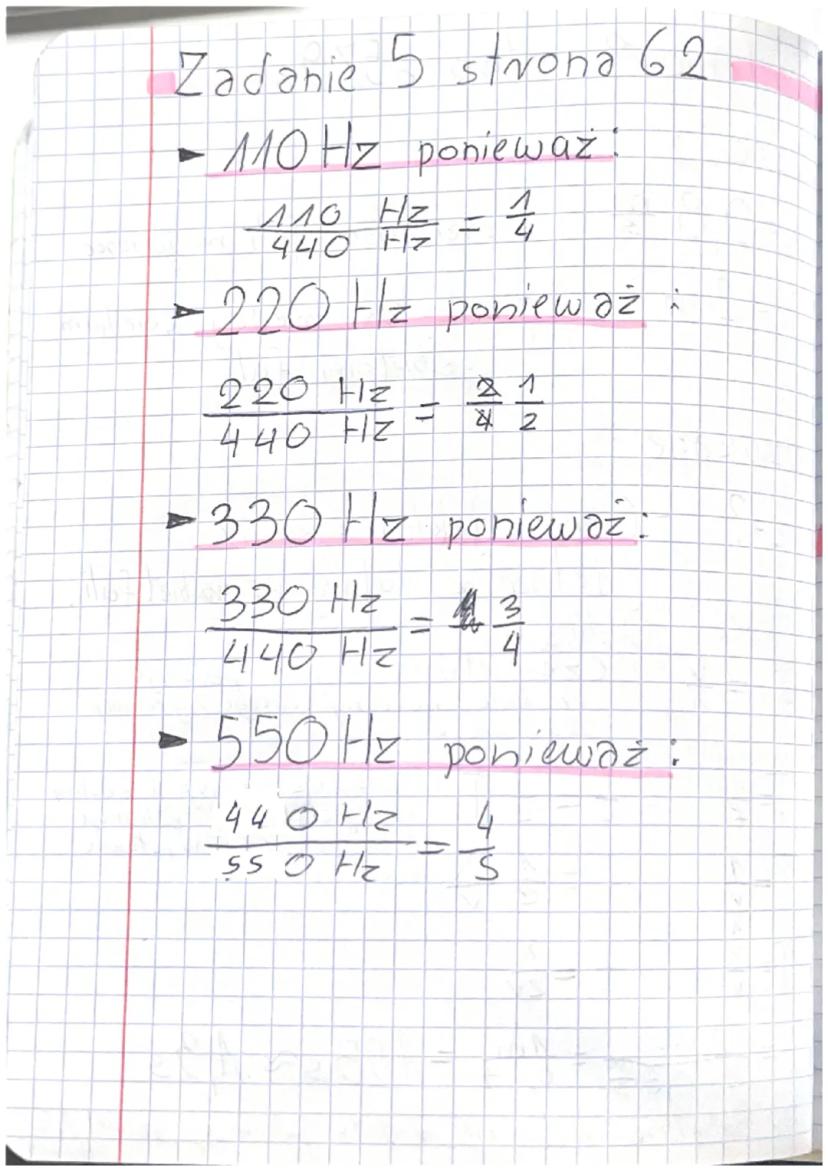 Zadanie 5 strona 62
► 110 Hz ponieważ:
110 Hz / 440 Hz = 1/4
► 220 Hz ponieważ:
220 Hz / 440 Hz = 2/4 1/2
► 330 Hz ponieważ:
330 Hz / 440 Hz = 3/4
► 550 Hz ponieważ:
440 Hz / 550 Hz = 4/5